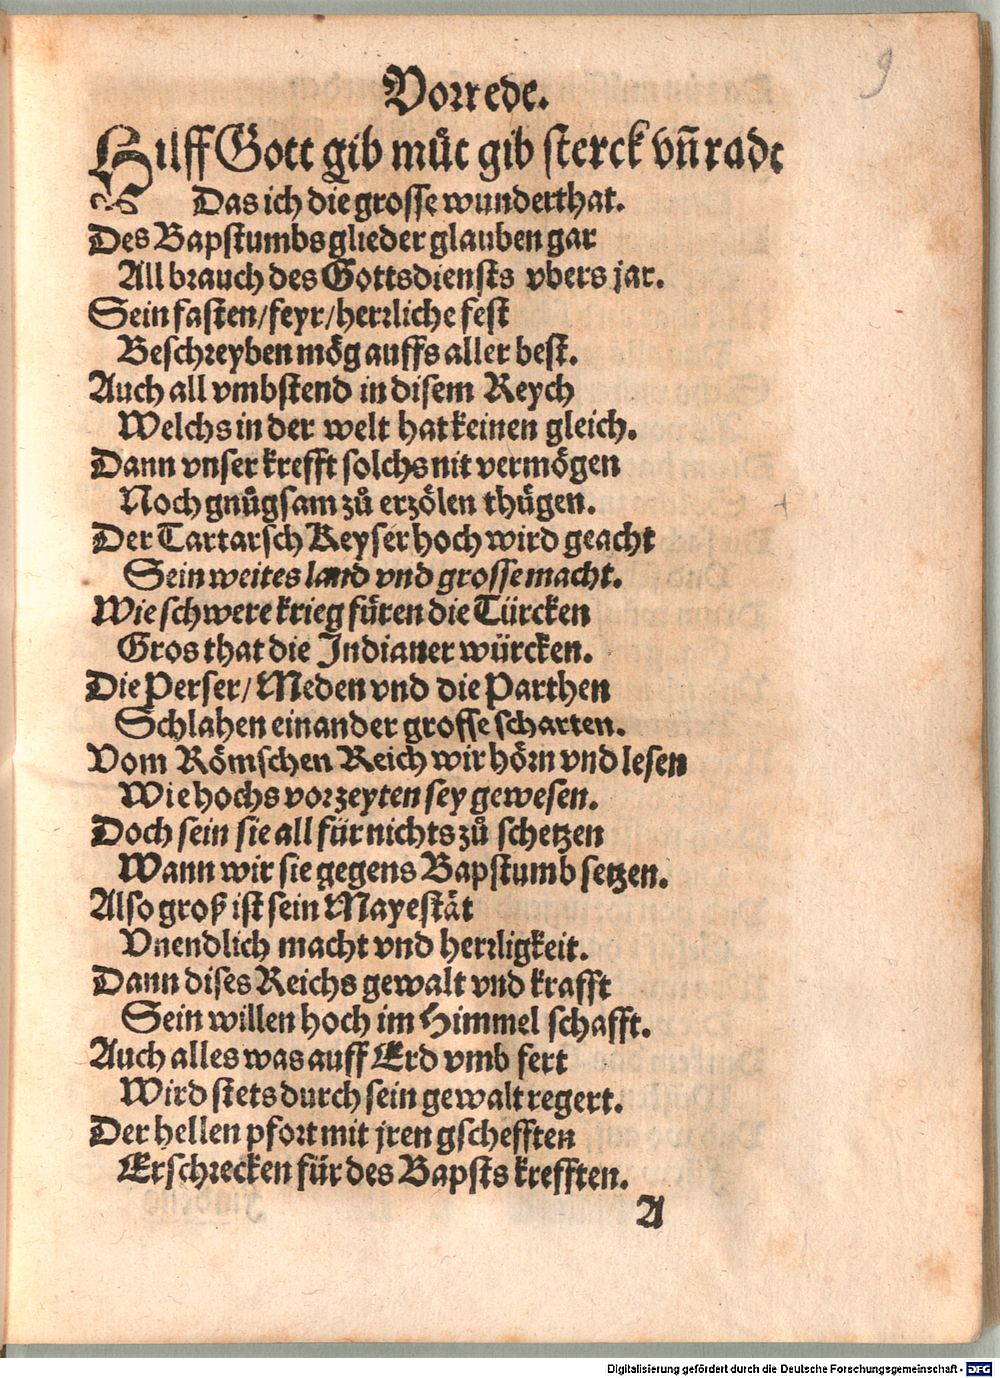 9
Vorrede.
Hilff Gott gib můt gib sterck vñ radt
Das ich die grosse wunderthat.
Des Bapstumbs glieder glauben gar
All brauch des Gottsdiensts vbers jar.
Sein fasten/feyr/herrliche fest
Beschreyben mög auffs aller best.
Auch all vmbstend in disem Reych
Welchs in der welt hat keinen gleich.
Dann vnser krefft solchs nit vermögen
Noch gnůgsam zů erzölen thügen.
Der Tartarsch Keyser hoch wird geacht
Sein weites land vnd grosse macht.
Wie schwere krieg füren die Türcken
Gros that die Indianer würcken.
Die Perser/Meden vnd die Parthen
Schlahen einander grosse scharten.
Vom Römschen Reich wir hörn vnd lesen
Wie hochs vorzeyten sey gewesen.
Doch sein sie all für nichts zů schetzen
Wann wir sie gegens Bapstumb setzen.
Also groß ist sein Mayestät
Vnendlich macht vnd herrligkeit.
Dann dises Reichs gewalt vnd krafft
Sein willen hoch im Himmel schafft.
Auch alles was auff Erd vmb fert
Wird stets durch sein gewalt regert.
Der hellen pfort mit jren gschefften
Erschrecken für des Bapsts krefften.
A
Digitalisierung gefördert durch die Deutsche Forschungsgemeinschaft - DFG